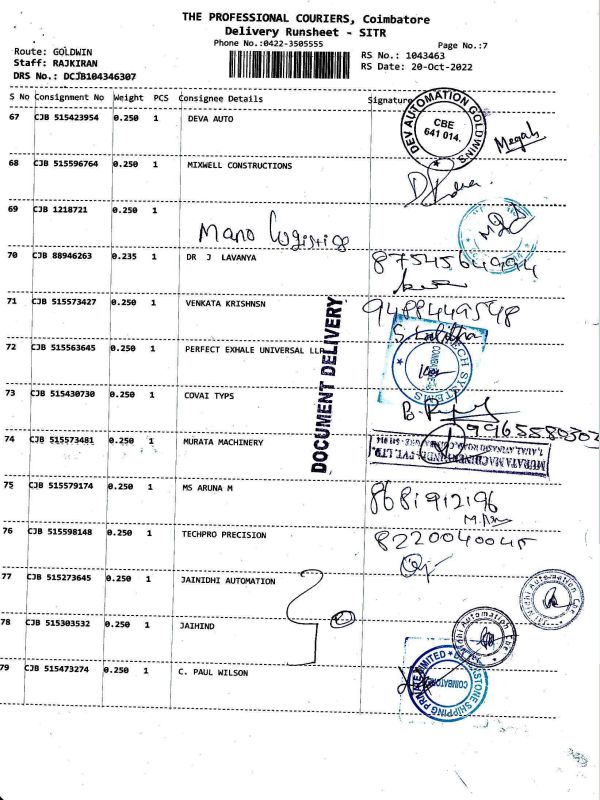 THE PROFESSIONAL COURIERS, Coimbatore
Delivery Runsheet - SITR
Phone No.:0422-3505555
Page No.:7
Route: GOLDWIN
RS No.: 1043463
Staff: RAJKIRAN
RS Date: 20-Oct-2022
DRS No.: DCJB104346307
S No Consignment No Weight PCS Consignee Details Signature
67 CJB 515423954 0.250 1 DEVA AUTO
DEV AUTOMATION GOLDWINS
CBE
641 014.
68 CJB 515596764 0.250 1 MIXWELL CONSTRUCTIONS
69 CJB 1218721 0.250 1
Mano Logistics
70 CJB 88946263 0.235 1 DR J LAVANYA
71 CJB 515573427 0.250 1 VENKATA KRISHNSN
9488449548
72 CJB 515563645 0.250 1 PERFECT EXHALE UNIVERSAL LLP
DOCUMENT DELIVERY
73 CJB 515430730 0.250 1 COVAI TYPS
74 CJB 515573481 0.250 1 MURATA MACHINERY
MURATA MACHINERY INDIA PVT. LTD.
75 CJB 515579174 0.250 1 MS ARUNA M
8681912196
76 CJB 515598148 0.250 1 TECHPRO PRECISION
8220040045
77 CJB 515273645 0.250 1 JAINIDHI AUTOMATION
Jai Nidhi Automation Cbe
78 CJB 515303532 0.250 1 JAIHIND
Jai Nidhi Automation Cbe
79 CJB 515473274 0.250 1 C. PAUL WILSON
SHIPPING PRIVATE LIMITED
COIMBATORE